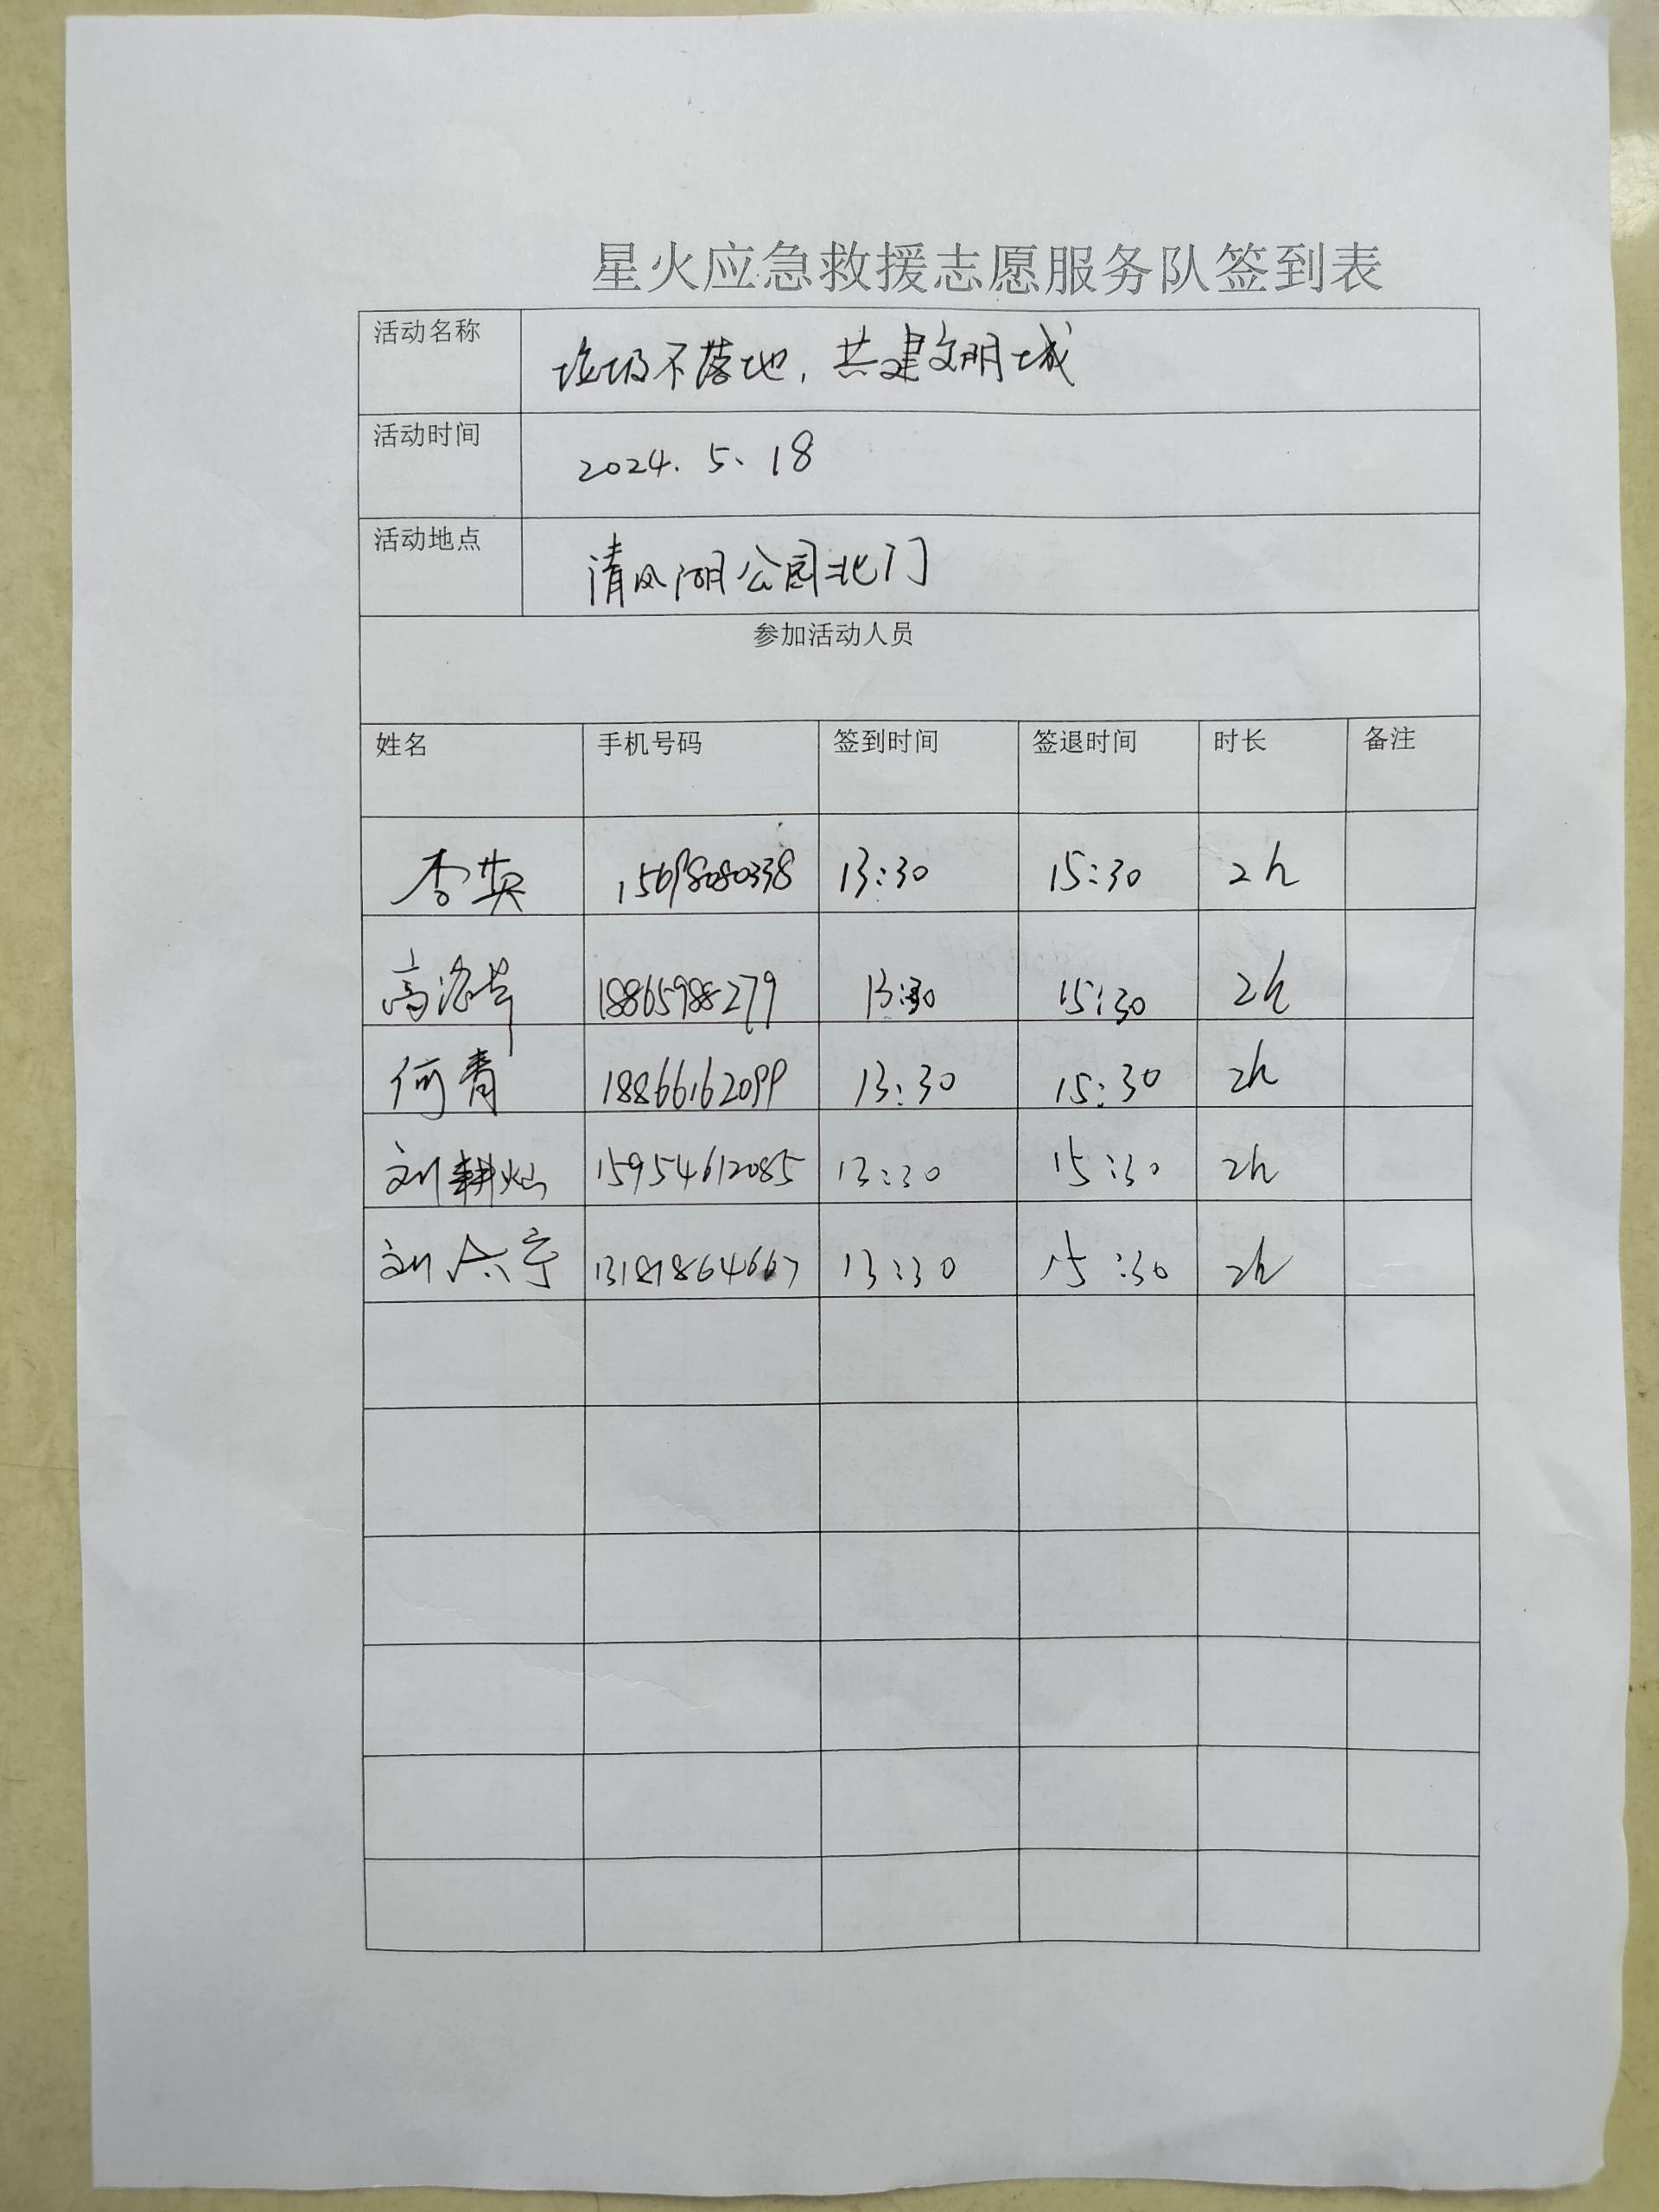 星火应急救援志愿服务队签到表
活动名称 垃圾不落地，共建文明城
活动时间 2024.5、18
活动地点 清风湖公园北门
参加活动人员
姓名 手机号码 签到时间 签退时间 时长 备注
李英 15698080338 13:30 15:30 2h
高 18865988279 13:30 15:30 2h
何青 18866162099 13:30 15:30 2h
刘耕灿 15954612085 13:30 15:30 2h
刘 宁 13181864667 13:30 15:30 2h